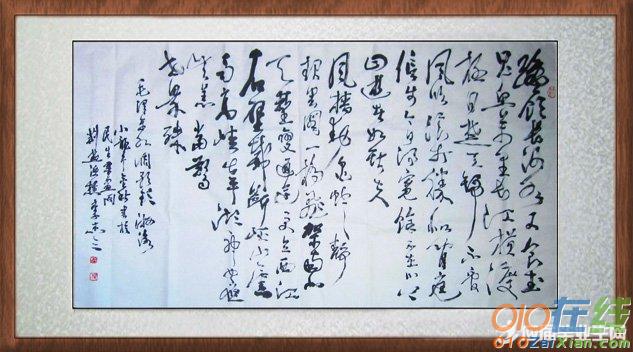 才饮长沙水又食武
昌鱼万里长江横渡
极目楚天舒不管
风吹浪打胜似闲庭
信步今日得宽馀子在川上
曰逝者如斯夫
风樯动龟蛇静
起宏图一桥飞架南北
天堑变通途更立西江
石壁截断巫山云雨
高峡出平湖神女应
无恙当惊
世界殊
毛泽东水调歌头游泳
010在线
010zaixian.com